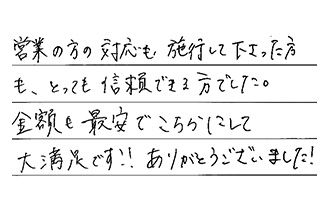 営業の方の対応も、施行して下さった方
も、とっても信頼できる方でした。
金額も最安でこちらにして
大満足です!! ありがとうございました!